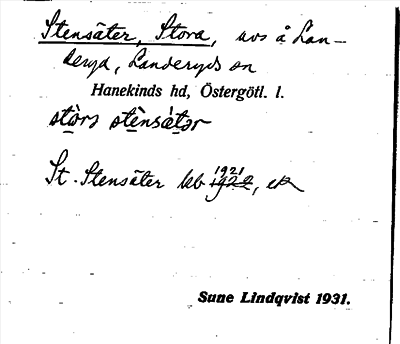 Stensäter, Stora, avs å Lan-
deryd, Landeryds sn
Hanekinds hd, Östergötl. l.
stòrs stènsä̀tǝr
St. Stensäter kb 1921 1922, ek
Sune Lindqvist 1931.